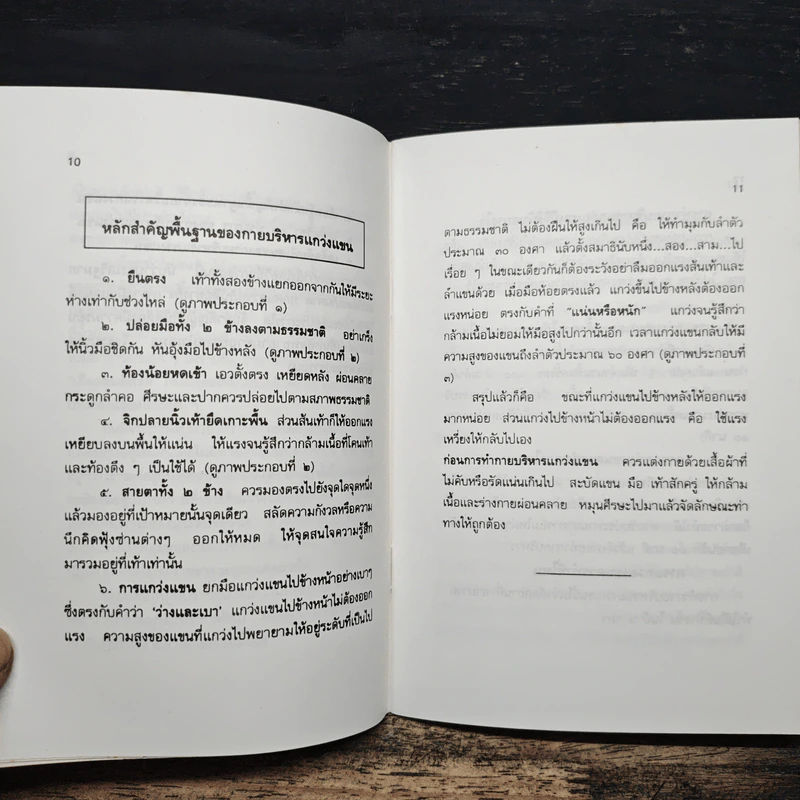 10
หลักสำคัญพื้นฐานของกายบริหารแกว่งแขน
๑. ยืนตรง เท้าทั้งสองข้างแยกออกจากกันให้มีระยะ
ห่างเท่ากับช่วงไหล่ (ดูภาพประกอบที่ ๑)
๒. ปล่อยมือทั้ง ๒ ข้างลงตามธรรมชาติ อย่าเกร็ง
ให้นิ้วมือชิดกัน หันอุ้งมือไปข้างหลัง (ดูภาพประกอบที่ ๒)
๓. ท้องน้อยหดเข้า เอวตั้งตรง เหยียดหลัง ผ่อนคลาย
กระดูกลำคอ ศีรษะและปากควรปล่อยไปตามสภาพธรรมชาติ
๔. จิกปลายนิ้วเท้ายึดเกาะพื้น ส่วนส้นเท้าก็ให้ออกแรง
เหยียบลงบนพื้นให้แน่น ให้แรงจนรู้สึกว่ากล้ามเนื้อที่โคนเท้า
และท้องตึง ๆ เป็นใช้ได้ (ดูภาพประกอบที่ ๒)
๕. สายตาทั้ง ๒ ข้าง ควรมองตรงไปยังจุดใดจุดหนึ่ง
แล้วมองอยู่ที่เป้าหมายนั้นจุดเดียว สลัดความกังวลหรือความ
นึกคิดฟุ้งซ่านต่างๆ ออกให้หมด ให้จุดสนใจความรู้สึก
มารวมอยู่ที่เท้าเท่านั้น
๖. การแกว่งแขน ยกมือแกว่งแขนไปข้างหน้าอย่างเบาๆ
ซึ่งตรงกับคำว่า ‘ว่างและเบา’ แกว่งแขนไปข้างหน้าไม่ต้องออก
แรง ความสูงของแขนที่แกว่งไปพยายามให้อยู่ระดับที่เป็นไป
11
ตามธรรมชาติ ไม่ต้องฝืนให้สูงเกินไป คือ ให้ทำมุมกับลำตัว
ประมาณ ๓๐ องศา แล้วตั้งสมาธินับหนึ่ง...สอง...สาม...ไป
เรื่อย ๆ ในขณะเดียวกันก็ต้องระวังอย่าลืมออกแรงส้นเท้าและ
ลำแขนด้วย เมื่อมือห้อยตรงแล้ว แกว่งขึ้นไปข้างหลังต้องออก
แรงหน่อย ตรงกับคำที่ “แน่นหรือหนัก” แกว่งจนรู้สึกว่า
กล้ามเนื้อไม่ยอมให้มือสูงไปกว่านั้นอีก เวลาแกว่งแขนกลับให้มี
ความสูงของแขนถึงลำตัวประมาณ ๖๐ องศา (ดูภาพประกอบที่
๓)
สรุปแล้วก็คือ ขณะที่แกว่งแขนไปข้างหลังให้ออกแรง
มากหน่อย ส่วนแกว่งแขนไปข้างหน้าไม่ต้องออกแรง คือ ใช้แรง
เหวี่ยงให้กลับไปเอง
ก่อนการทำกายบริหารแกว่งแขน ควรแต่งกายด้วยเสื้อผ้าที่
ไม่คับหรือรัดแน่นเกินไป สะบัดแขน มือ เท้าสักครู่ ให้กล้าม
เนื้อและร่างกายผ่อนคลาย หมุนศีรษะไปมาแล้วจัดลักษณะท่า
ทางให้ถูกต้อง